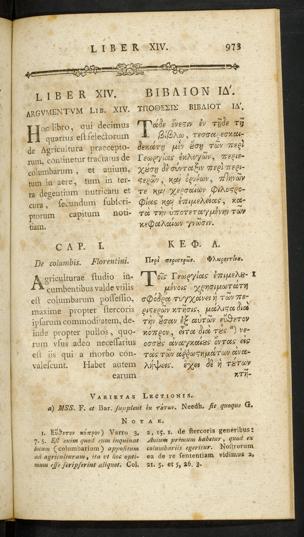 LIBER XIV. 973
LIBER XIV.
ARGVMENTVM LIB. XIV.
Hoc libro, qui decimus
quartus est selectorum
de Agricultura praecepto-
rum, continetur tractatus de
columbarum, et auium,
tum in aere, tum in ter-
ra degentium nutricatu et
cura, secundum subscri-
ptorum capitum noti-
tiam.
CAP. I.
De columbis. Florentini.
Agriculturae studio in-
cumbentibus valde vtilis
est columbarum possessio,
maxime propter stercoris
ipsarum commoditatem, de-
inde propter pullos, quo-
rum vsus adeo necessarius
est iis qui a morbo con-
valescunt. Habet autem
earum
ΒΙΒΛΙΟΝ ΙΔ'.
ΥΠΟΘΕΣΙΣ ΒΙΒΛΙΟΥ ΙΔ'.
Τάδε ἔνεσιν ἐν τῇδε τῇ
βίβλῳ, τεσσαρεσκαι-
δεκάτῃ μὲν ὔσῃ τῶν περὶ
Γεωργίας ἐκλογῶν, περιε-
χύσῃ δὲ σύνταξιν περὶ περι-
ςερῶν, καὶ ὀρνέων, πτηνῶν
τε καὶ χερσαίων φιλοτρο-
φίας καὶ ἐπιμελείας, κα-
τὰ τὴν ὑποτεταγμένην τῶν
κεφαλαίων γνῶσιν.
ΚΕΦ. Α.
Περὶ περιςερῶν. Φλωρεντίνυ.
Τοῖς Γεωργίας ἐπιμελυ- 1
μένοις χρησιμωτάτη
σφόδρα τυγχάνει ἡ τῶν πε-
ριςερῶν κτῆσις, μάλιςα διὰ
τὴν ὖσαν ἐξ αὐτῶν εὔθετον
κόπρον, εἶτα διὰ τὺς a) νεο-
σσὺς ἀναγκαίυς ὄντας εἰς
τὰς τῶν ἀῤῥωςημάτων ἀνα-
λήψεις. ἔχει δὲ ἡ τύτων
κτῆ-
VARIETAS LECTIONIS.
a) MSS. F. et Bar. supplent in τύτυς. Needh. sic quoque G.
NOTAE.
1. Εὔθετον κόπρον) Varro 3,
7. 5. Est enim quod eum inquinat
locum (columbarium) appositum
ad agriculturam, ita vt hoc opti-
mum esse scripserint aliquot. Col.
2, 15, 1. de stercoris generibus:
Auium primum habetur, quod ex
columbariis egeritur. Nostrorum
ea de re sententiam vidimus 2,
21. 5. et 5, 26. 3.